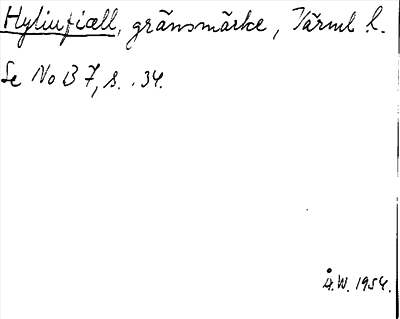 Hyliufiæll, gränsmärke, Värml l.
Se No B 7, s. 34.
Å.W. 1954.